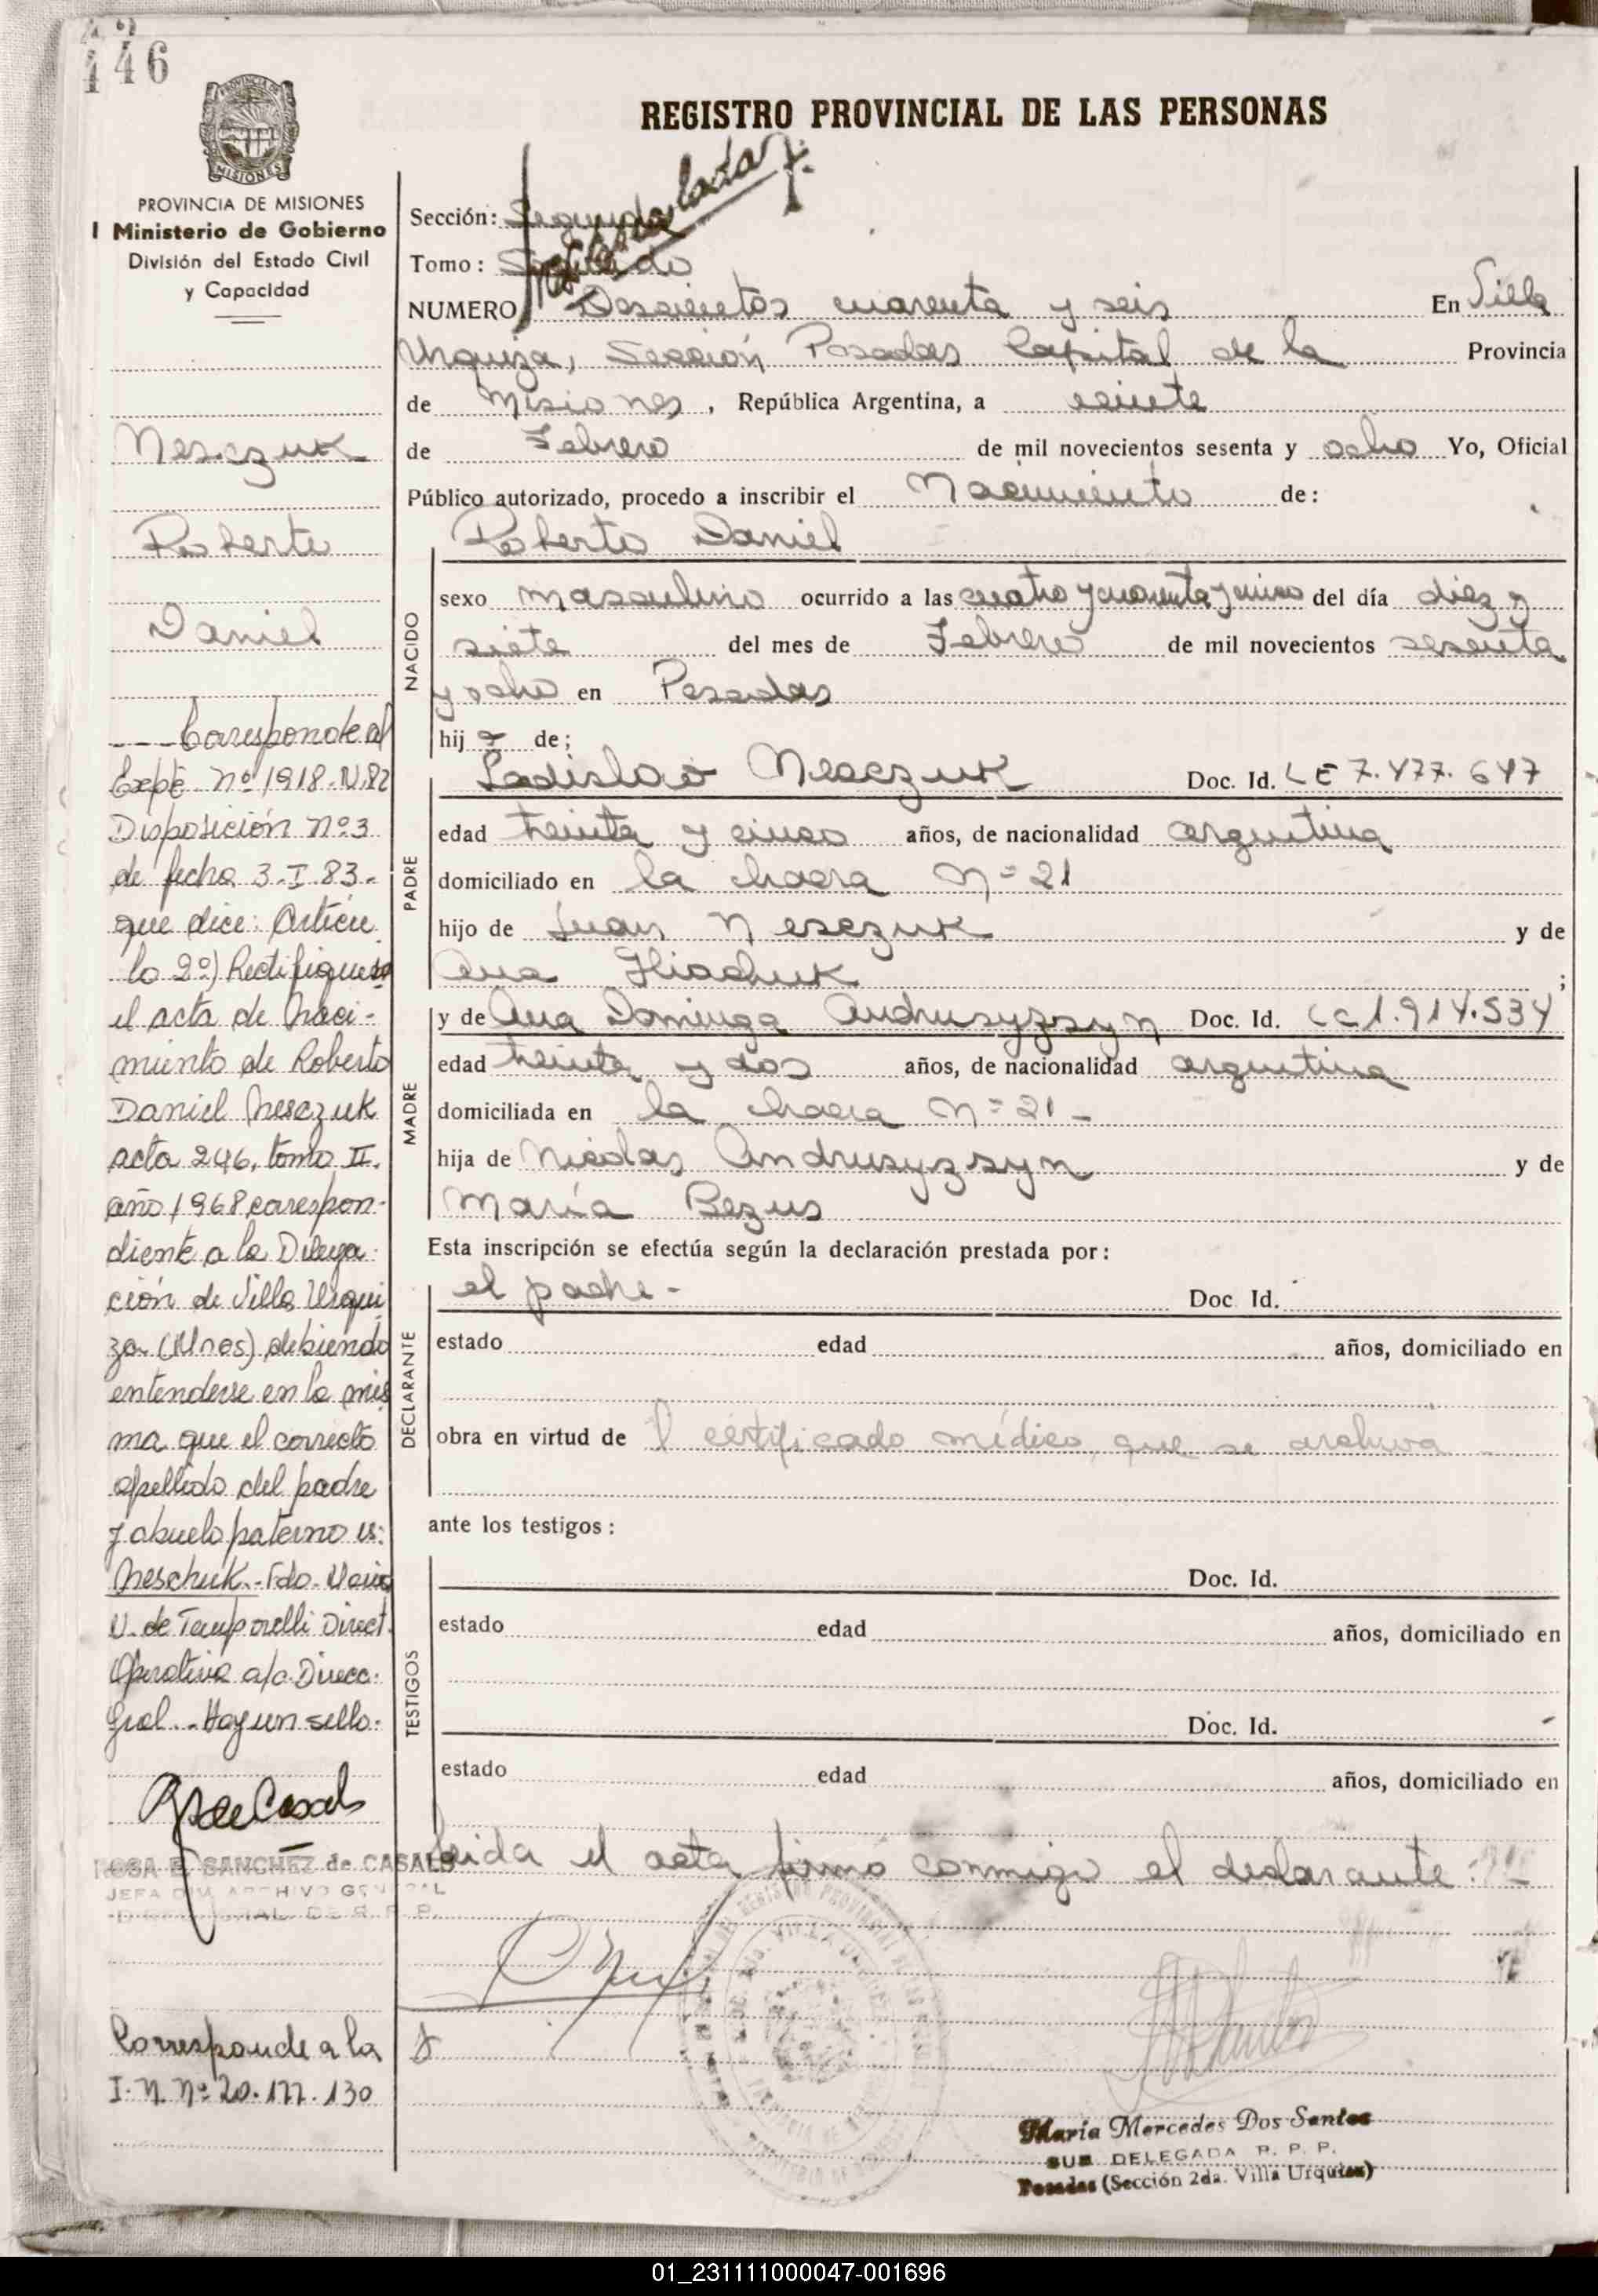 146
REGISTRO PROVINCIAL DE LAS PERSONAS
MISIONES
PROVINCIA DE MISIONES
Ministerio de Gobierno
División del Estado Civil
y Capacidad
Sección: Segunda
Tomo: Segundo
NUMERO Doscientos cuarenta y seis En Villa
Urquiza, Sección Posadas Capital de la Provincia
de Misiones, República Argentina, a veinte
de Febrero de mil novecientos sesenta y ocho Yo, Oficial
Público autorizado, procedo a inscribir el Nacimiento de:
Nesczuk
Roberto
Daniel
NACIDO
Roberto Daniel
sexo masculino ocurrido a las cuatro y cuarenta y cinco del día diez y
siete del mes de Febrero de mil novecientos sesenta
y ocho en Posadas
hijo de;
PADRE
Ladislao Nesczuk Doc. Id. LE 7.477.647
edad treinta y cinco años, de nacionalidad argentina
domiciliado en la chacra Nº 21
hijo de Juan Nesczuk y de
Ana Hliachuk ;
MADRE
y de Ana Dominga Andrusyzsyn Doc. Id. LC 1.914.534
edad treinta y dos años, de nacionalidad argentina
domiciliada en la chacra Nº 21 -
hija de Nicolas Andrusyzsyn y de
María Bezus
Esta inscripción se efectúa según la declaración prestada por:
DECLARANTE
el padre - Doc. Id.
estado edad años, domiciliado en
obra en virtud de l certificado médico, que se archiva
ante los testigos:
TESTIGOS
Doc. Id.
estado edad años, domiciliado en
Doc. Id.
estado edad años, domiciliado en
Leida el acta firmó conmigo el declarante.
María Mercedes Dos Santos
SUB DELEGADA R. P. P.
Posadas (Sección 2da. Villa Urquiza)
Coresponde al
Expe nº 1918-N.82
Disposición nº 3
de fecha 3-I-83-
que dice: Artícu
lo 2º) Rectifiquese
el acta de Naci-
miento de Roberto
Daniel Nesczuk
acta 246, tomo II.
año 1968 corespon-
diente a la Delega-
ción de Villa Urqui
za (Mnes) debiendo
entenderse en la mis
ma que el correcto
apellido del padre
y abuelo paterno es:
Neschuk.- Fdo. Maria
N. de Temporelli Direct.
Operativa a/c. Direcc.
Gral.- Hay un sello.
ROSA E. SANCHEZ de CASALS
JEFA DIV. ARCHIVO GENERAL
Corresponde a la
I. N. Nº 20.177.130
01_231111000047-001696